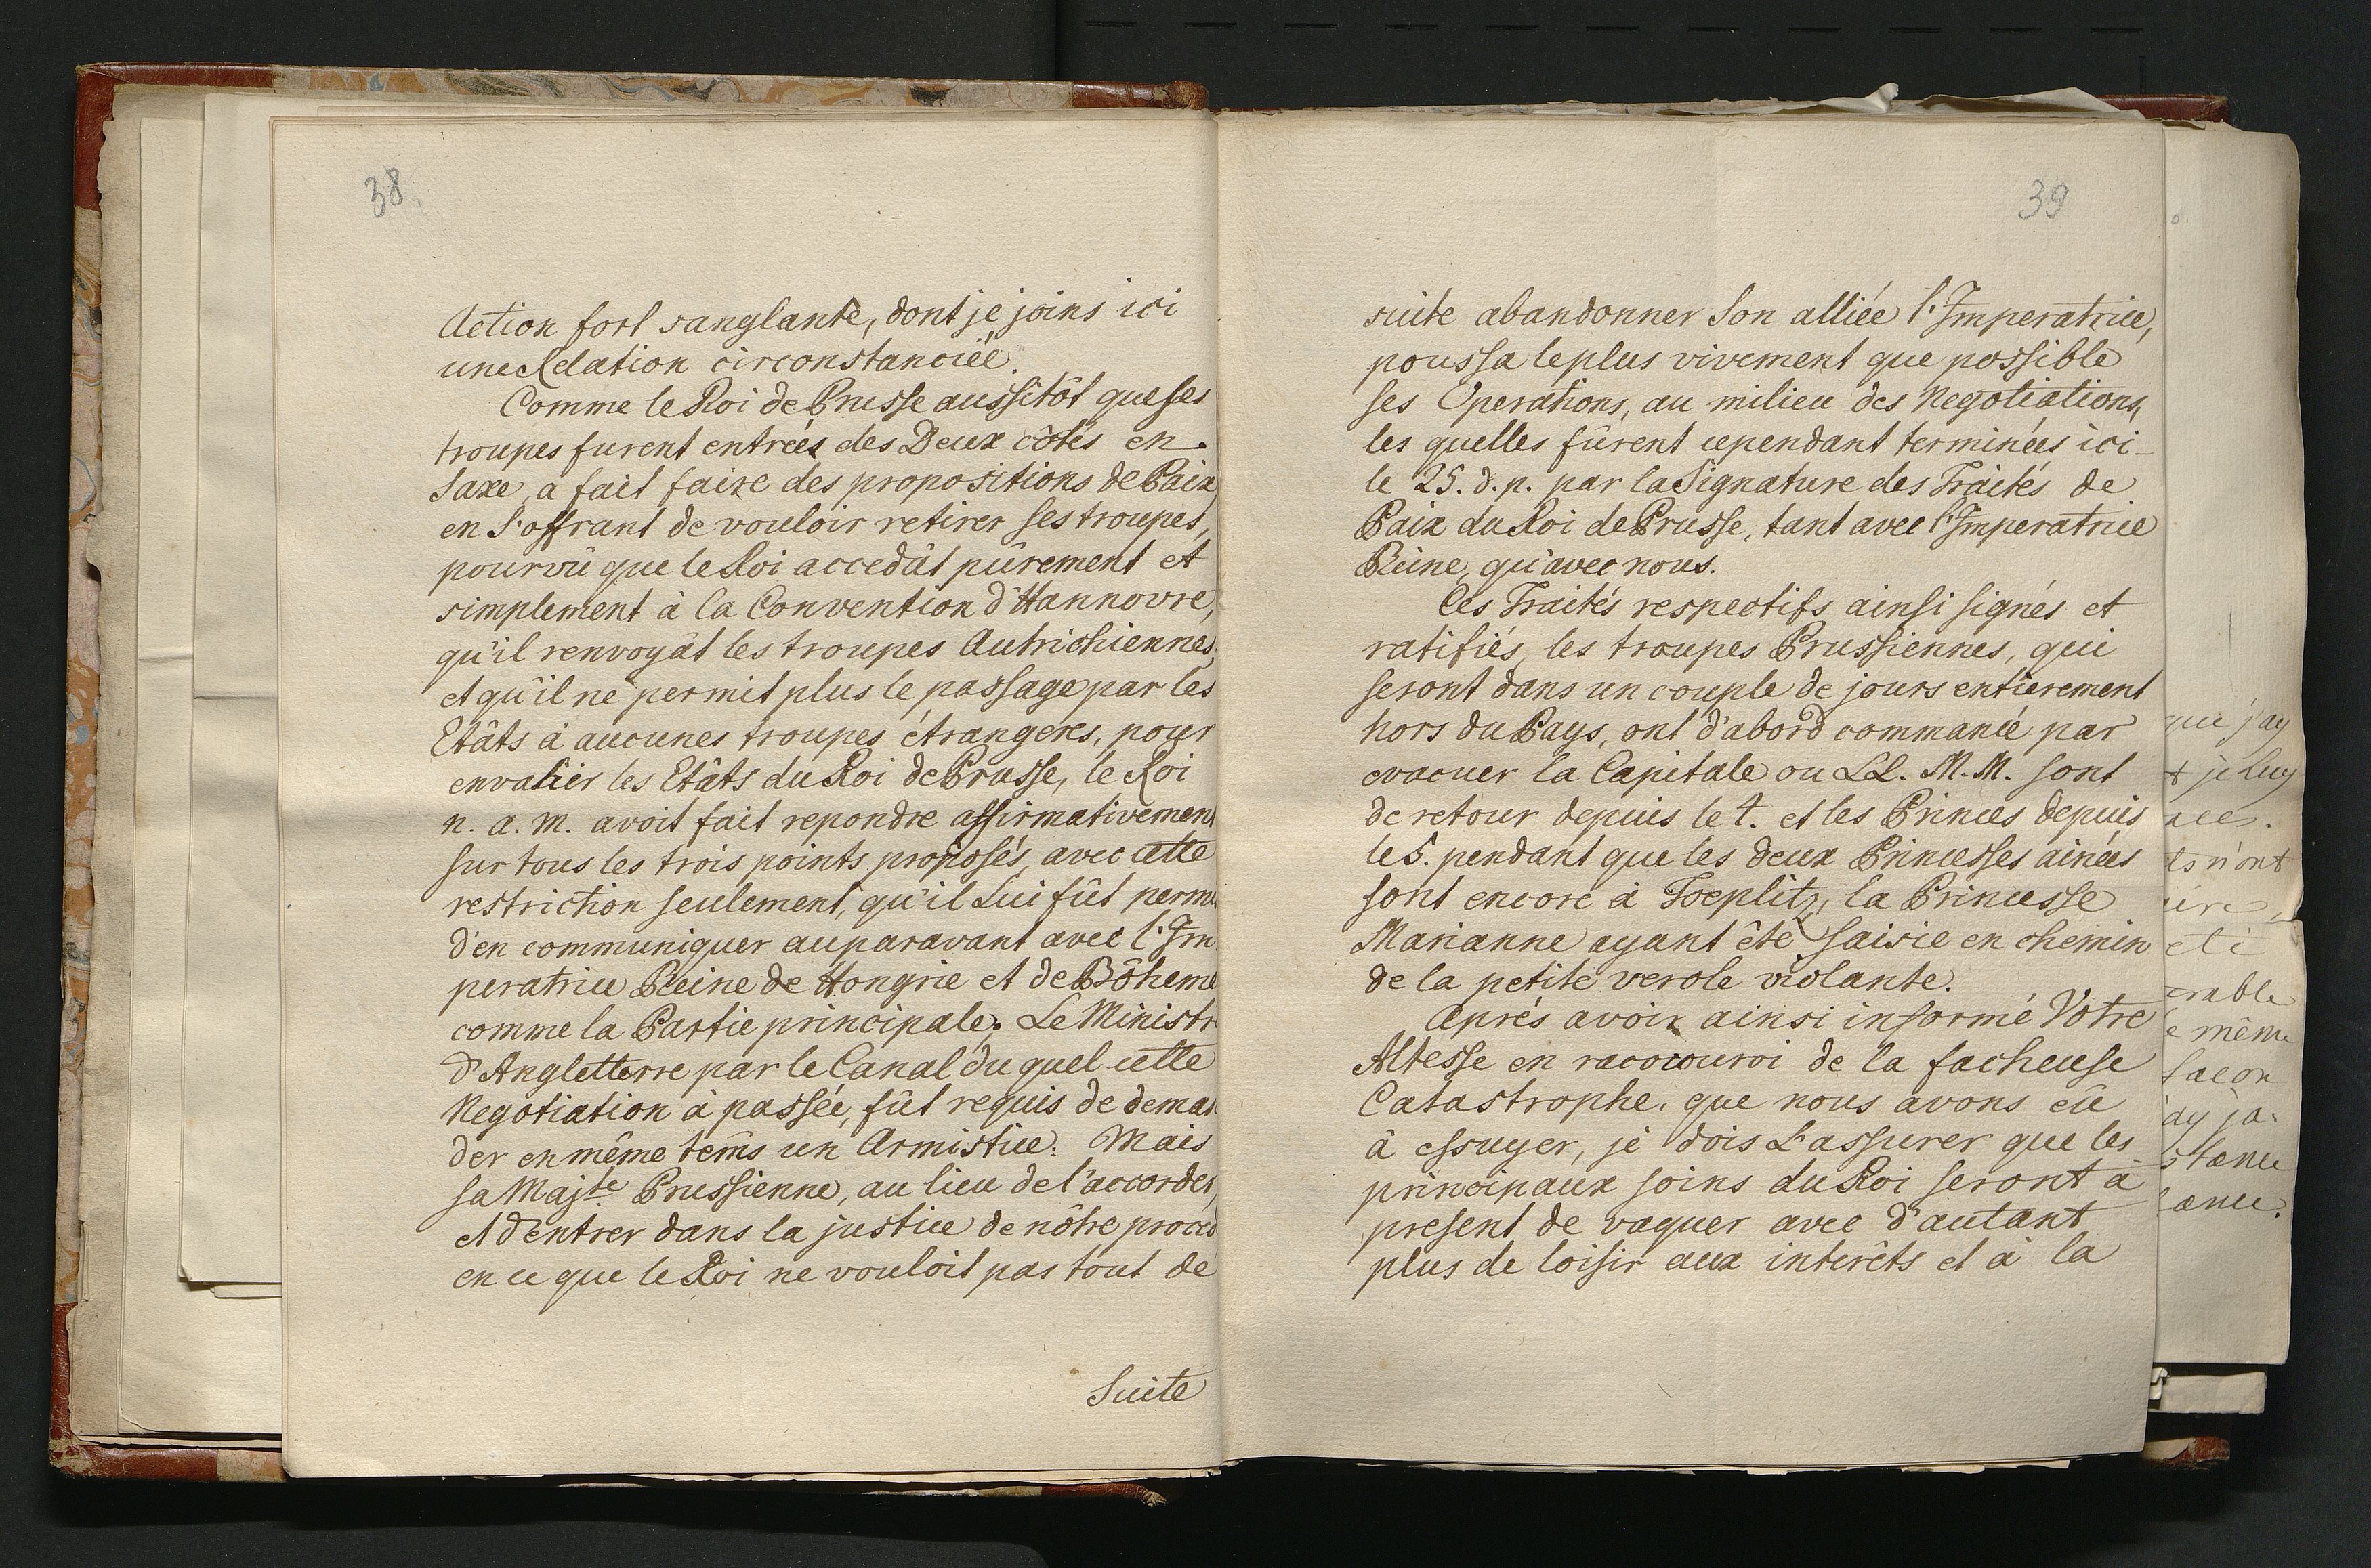 38
Action fort sanglante, dont je joins ici
une Relation circonstanciée.
Comme le Roi de Prusse aussitôt que ses
troupes furent entrées des Deux côtés en
Saxe, a fait faire des propositions de Paix
en S'offrant de vouloir retirer ses troupes,
pourvû que le Roi accedât pûrement et
simplement à la Convention d'Hannovre,
qu'il renvoyât les troupes Autrichiennes,
et qu'il ne permit plus le passage par les
Etâts à aucunes troupes étrangeres, pour
envahir les Etâts du Roi de Prusse, le Roi
n. a. m. avoit fait repondre affirmativement
sur tous les trois points proposés, avec cette
restriction seulement, qu'il Lui fût permis
d'en communiquer auparavant avec l'Im
peratrice Reine de Hongrie et de Bôheme
comme la Partie principale. Le Ministre
d'Angletterre par le Canal du quel cette
Negotiation a passée, fût requis de deman
der en même tems un Armistice: Mais
sa Majté Prussienne, au lieu de l'accorder,
et d'entrer dans la justice de nôtre procedé
en ce que le Roi ne vouloit pas tout de
Suite
39
suite abandonner Son alliée l'Imperatrice,
poussa le plus vivement que possible
ses Operations, au milieu des Negotiations,
les quelles fûrent cependant terminées ici
le 25. d. p. par la Signature des Traités de
Paix du Roi de Prusse, tant avec l'Imperatrice
Reine, qu'avec nous.
Ces Traités respectifs ainsi signés et
ratifiés, les troupes Prussiennes, qui
seront dans un couple de jours entierement
hors du Pays, ont d'abord commancé par
evacuer la Capitale ou LL. M. M. sont
de retour depuis le 4. et les Princes depuis
le 5. pendant que les deux Princesses ainées
sont encore à Toeplitz, la Princesse
Marianne ayant êté saisie en chemin
de la petite verole violante.
Aprés avoir ainsi informé Votre
Altesse en raccourci de la facheuse
Catastrophe, que nous avons eû
à essuyer, je dois L'assurer que les
principaux soins du Roi seront à
present de vaquer avec d'autant
plus de loisir aux interêts et à la
que j'ay
je luy
n'ont
rable
même
facon
ay ja-